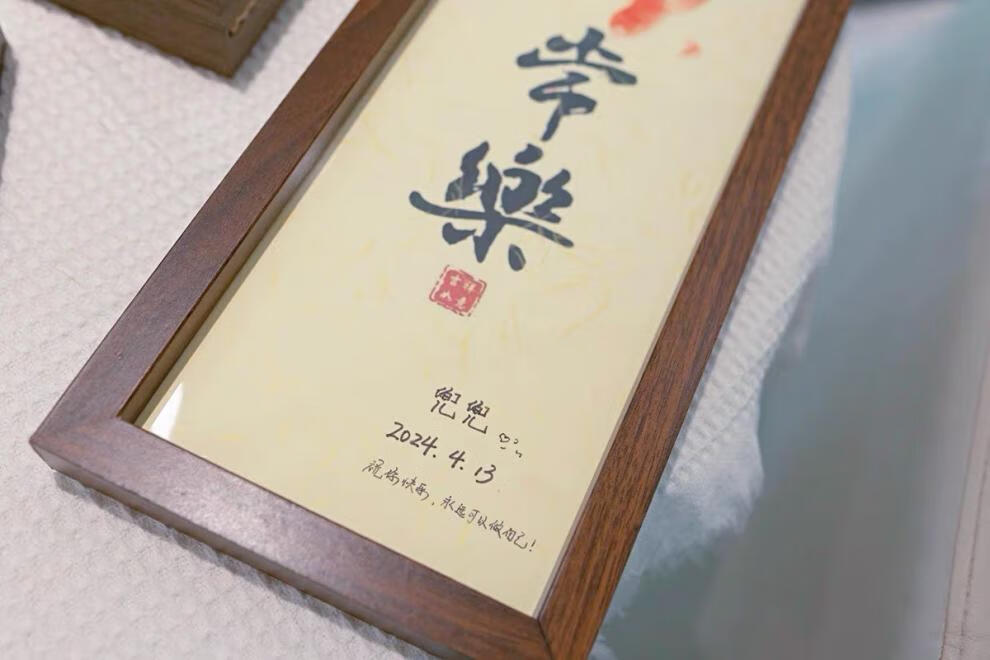 常
樂
吉祥
如意
兜兜
2024.4.13
愿你快乐，永远可以做自己！